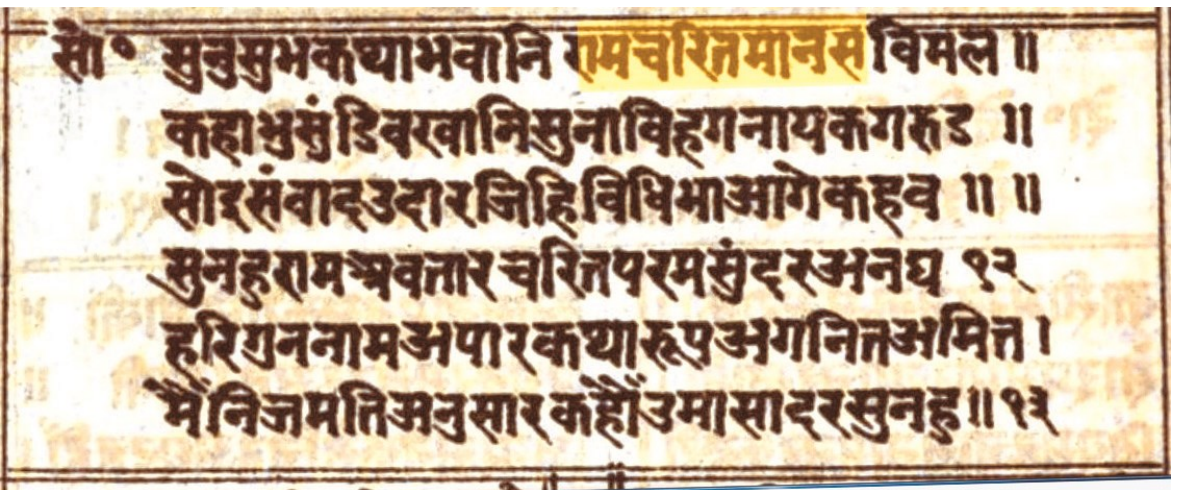 सो० सुनुसुभकथाभवानि रामचरितमानस विमल ॥
कहाभुसुंडिवखानिसुनाविहगनायकगरुड ॥
सोइसंवादउदारजिहिविधिभाआगेकहव ॥ ॥
सुनहुरामअवतारचरितपरमसुंदरअनघ १२
हरिगुननामअपारकथारूपअगनितअमित ।
मैंनिजमतिअनुसारकहौंउमासादरसुनहु ॥ १३